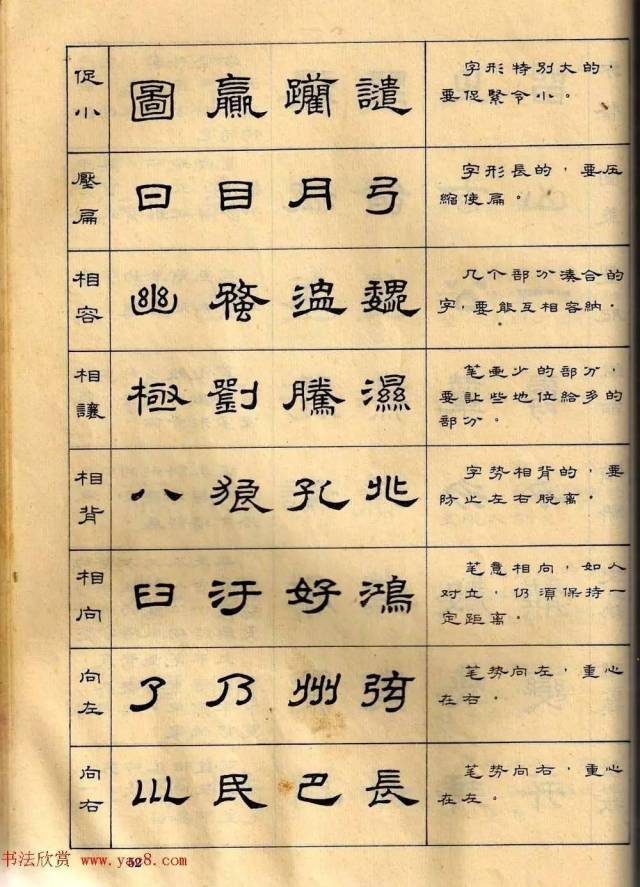 促小
圖 贏 譴
字形特别大的，
要促緊令小。
壓扁
日 目 月 弓
字形長的，要压
縮使扁。
相容
幽 魏
几个部分湊合的
字，要能互相容納。
相讓
極 劉 騰 濕
笔画少的部分，
要让些地位給多的
部分。
相背
八 狼 孔 兆
字势相背的，要
防止左右脱离。
相向
臼 汙 好 鴻
笔意相向，如人
对立，仍須保持一
定距离。
向左
了 乃 州 弦
笔势向左，重心
在右。
向右
民 巴 長
笔势向右，重心
在左。
52
书法欣赏 www.yac8.com